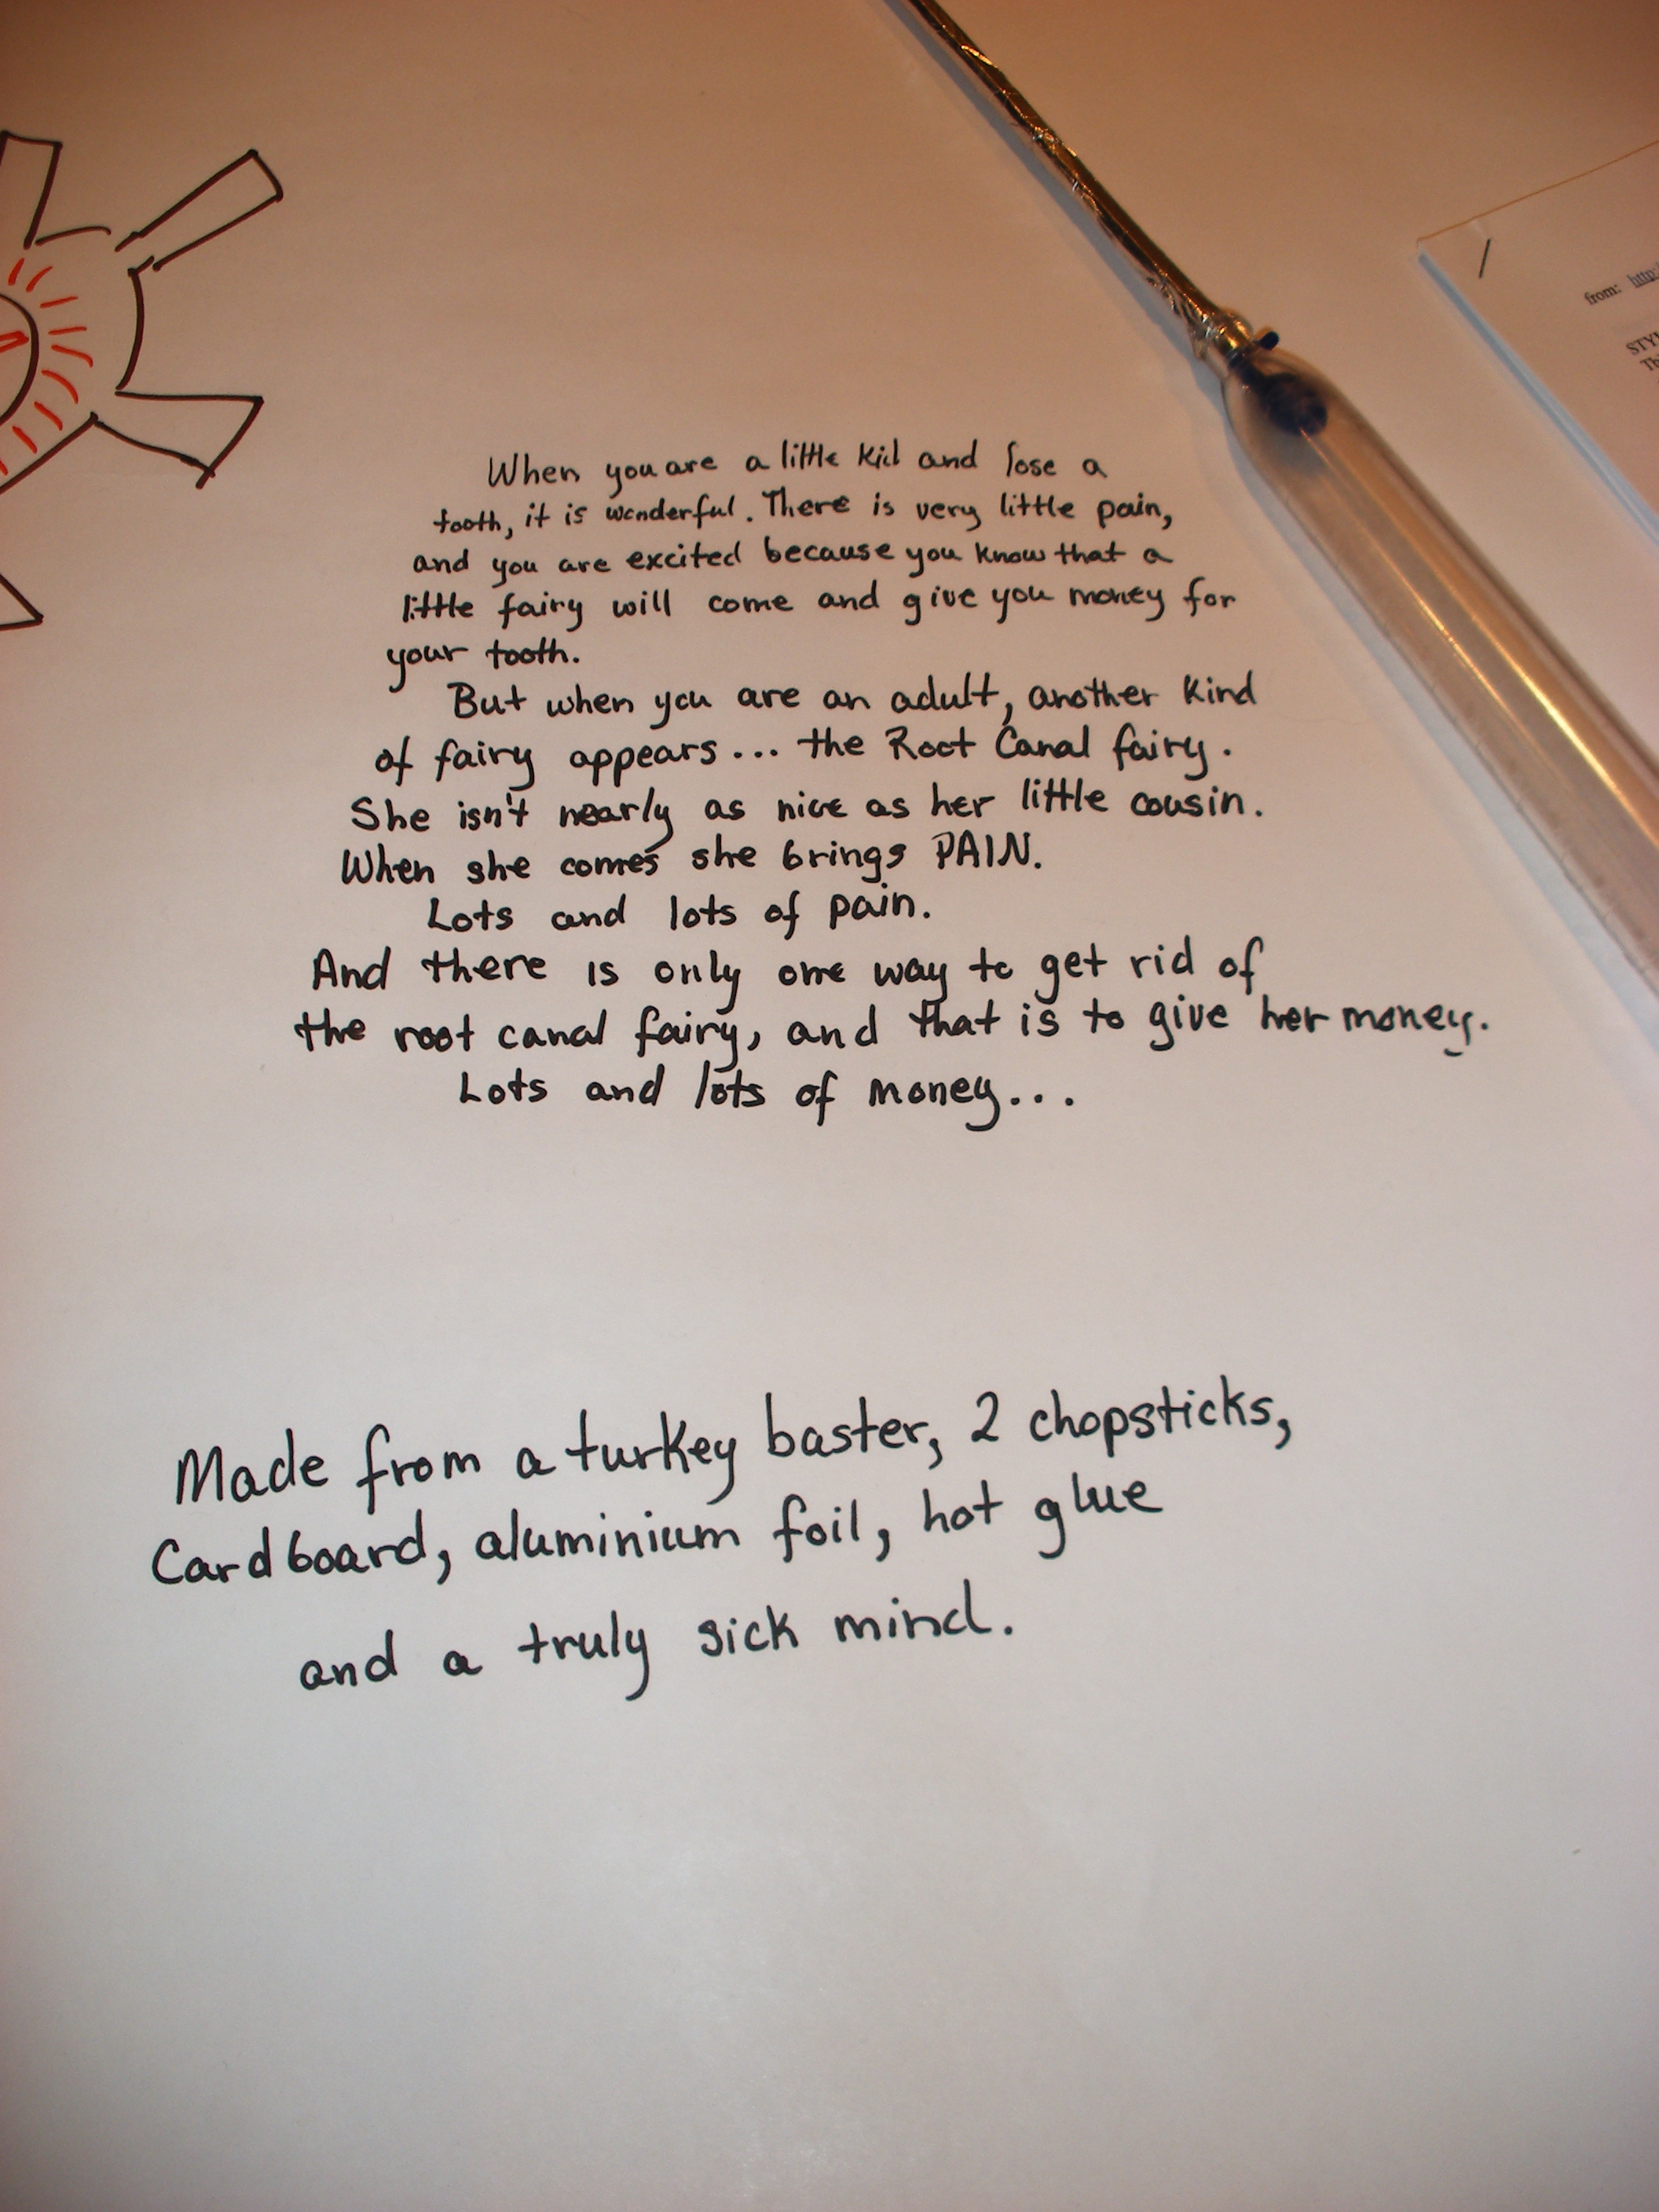 When you are a little kid and lose a
tooth, it is wonderful. There is very little pain,
and you are excited because you know that a
little fairy will come and give you money for
your tooth.
But when you are an adult, another kind
of fairy appears... the Root Canal fairy.
She isn't nearly as nice as her little cousin.
When she comes she brings PAIN.
Lots and lots of pain.
And there is only one way to get rid of
the root canal fairy, and that is to give her money.
Lots and lots of money...
Made from a turkey baster, 2 chopsticks,
Cardboard, aluminium foil, hot glue
and a truly sick mind.
from: http: